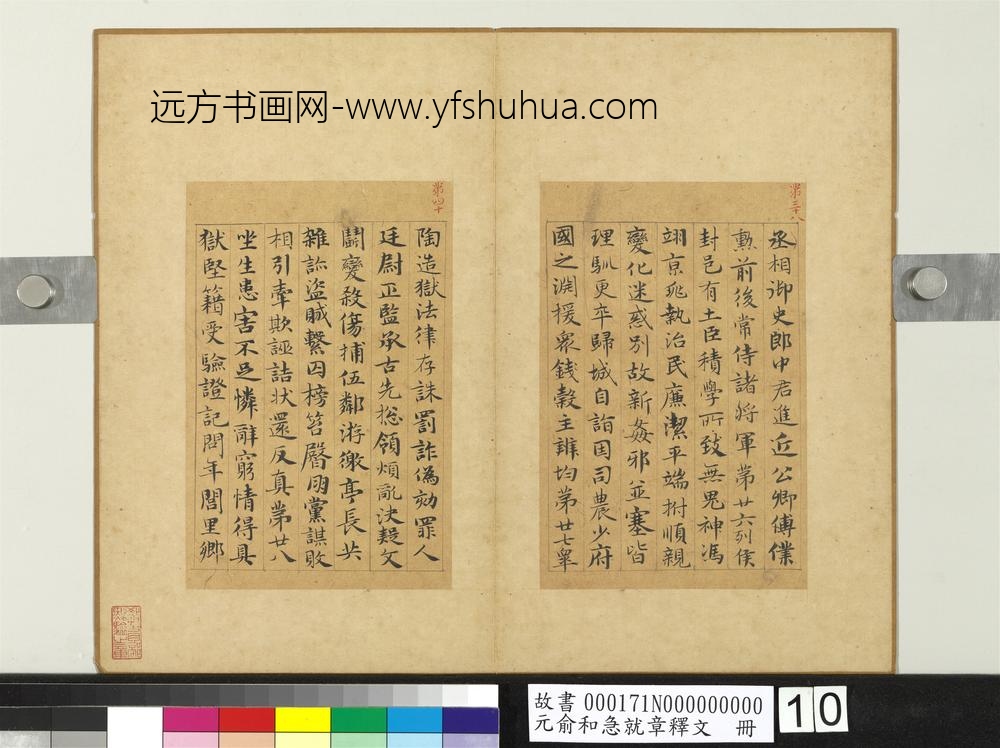 远方书画网-www.yfshuhua.com
第三十八
丞相御史郎中君進近公卿傅僕
勲前後常侍諸将軍苐廿六列侯
封邑有土臣積學所致無鬼神馮
翊京兆執治民廉潔平端拊順親
變化迷惑別故新姦邪並塞皆
理馴更卒歸城自詣因司農少府
國之淵援衆錢穀主辨均苐廿七皐
第四十
陶造獄法律存誅罰詐偽劾罪人
廷尉正監承古先捴領煩亂決疑文
鬭變殺傷捕伍鄰游徼亭長共
雜訟盜賊繫囚榜笞臋朋黨謀敗
相引牽欺誣詰状還反真苐廿八
坐生患害不足憐辭窮情得具
獄堅籍受驗證記問年閭里鄉
故書 000171N000000000
元俞和急就章釋文 冊
10